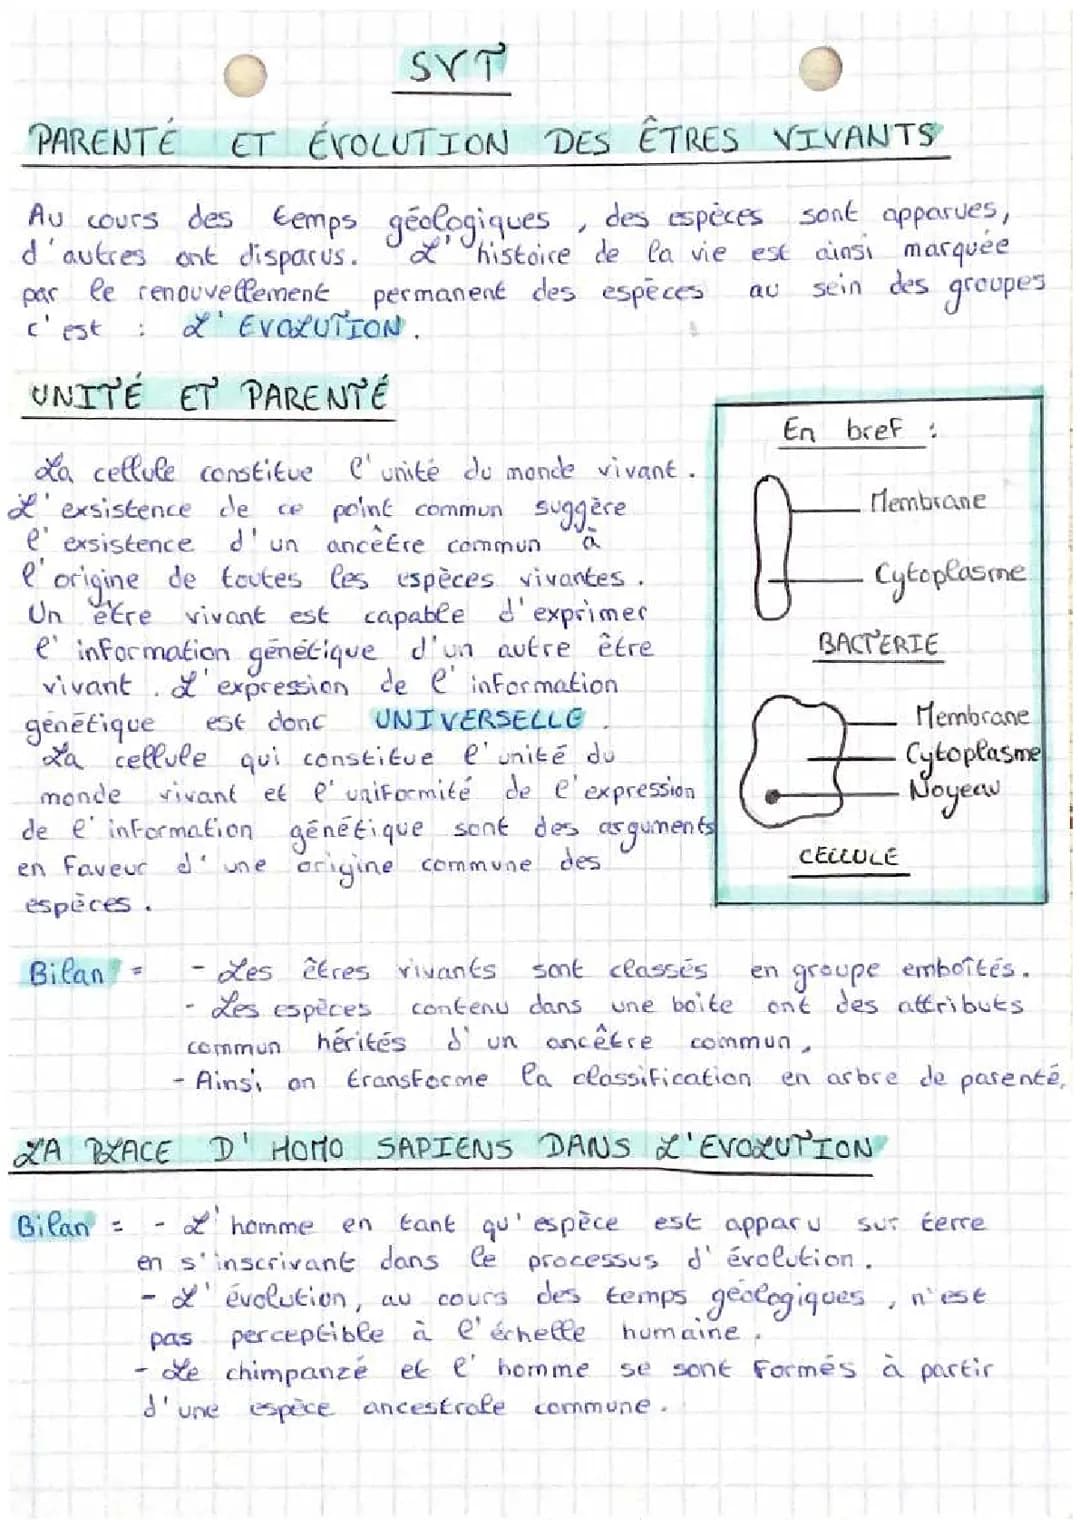 SVT
PARENTÉ ET ÉVOLUTION DES ÊTRES VIVANTS
Au cours des temps géologiques, des espèces sont apparues,
d'autres ont disparus. L'histoire de la vie est ainsi marquée
par le renouvellement permanent des espèces au sein des groupes
c'est : L'EVOLUTION.
UNITÉ ET PARENTÉ
La cellule constitue l'unité du monde vivant.
L'exsistence de ce point commun suggère
l'exsistence d'un ancêtre commun à
l'origine de toutes les espèces vivantes.
Un être vivant est capable d'exprimer
l'information génétique d'un autre être
vivant. L'expression de l'information
génétique est donc UNIVERSELLE.
La cellule qui constitue l'unité du
monde vivant et l'uniformité de l'expression
de l'information génétique sont des arguments
en faveur d'une origine commune des
espèces.
En bref :
Membrane
Cytoplasme
BACTERIE
Membrane
Cytoplasme
Noyeau
CELLULE
Bilan = - Les êtres vivants sont classés en groupe emboîtés.
- Les espèces contenu dans une boite ont des attributs
commun hérités d'un ancêtre commun.
- Ainsi, on transforme la classification en arbre de parenté.
LA PLACE D'HOMO SAPIENS DANS L'EVOLUTION
Bilan = - L'homme en tant qu'espèce est apparu sur terre
en s'inscrivant dans le processus d'évolution.
- L'évolution, au cours des temps géologiques, n'est
pas perceptible à l'échelle humaine.
- Le chimpanzé et l'homme se sont formés à partir
d'une espèce ancestrale commune.